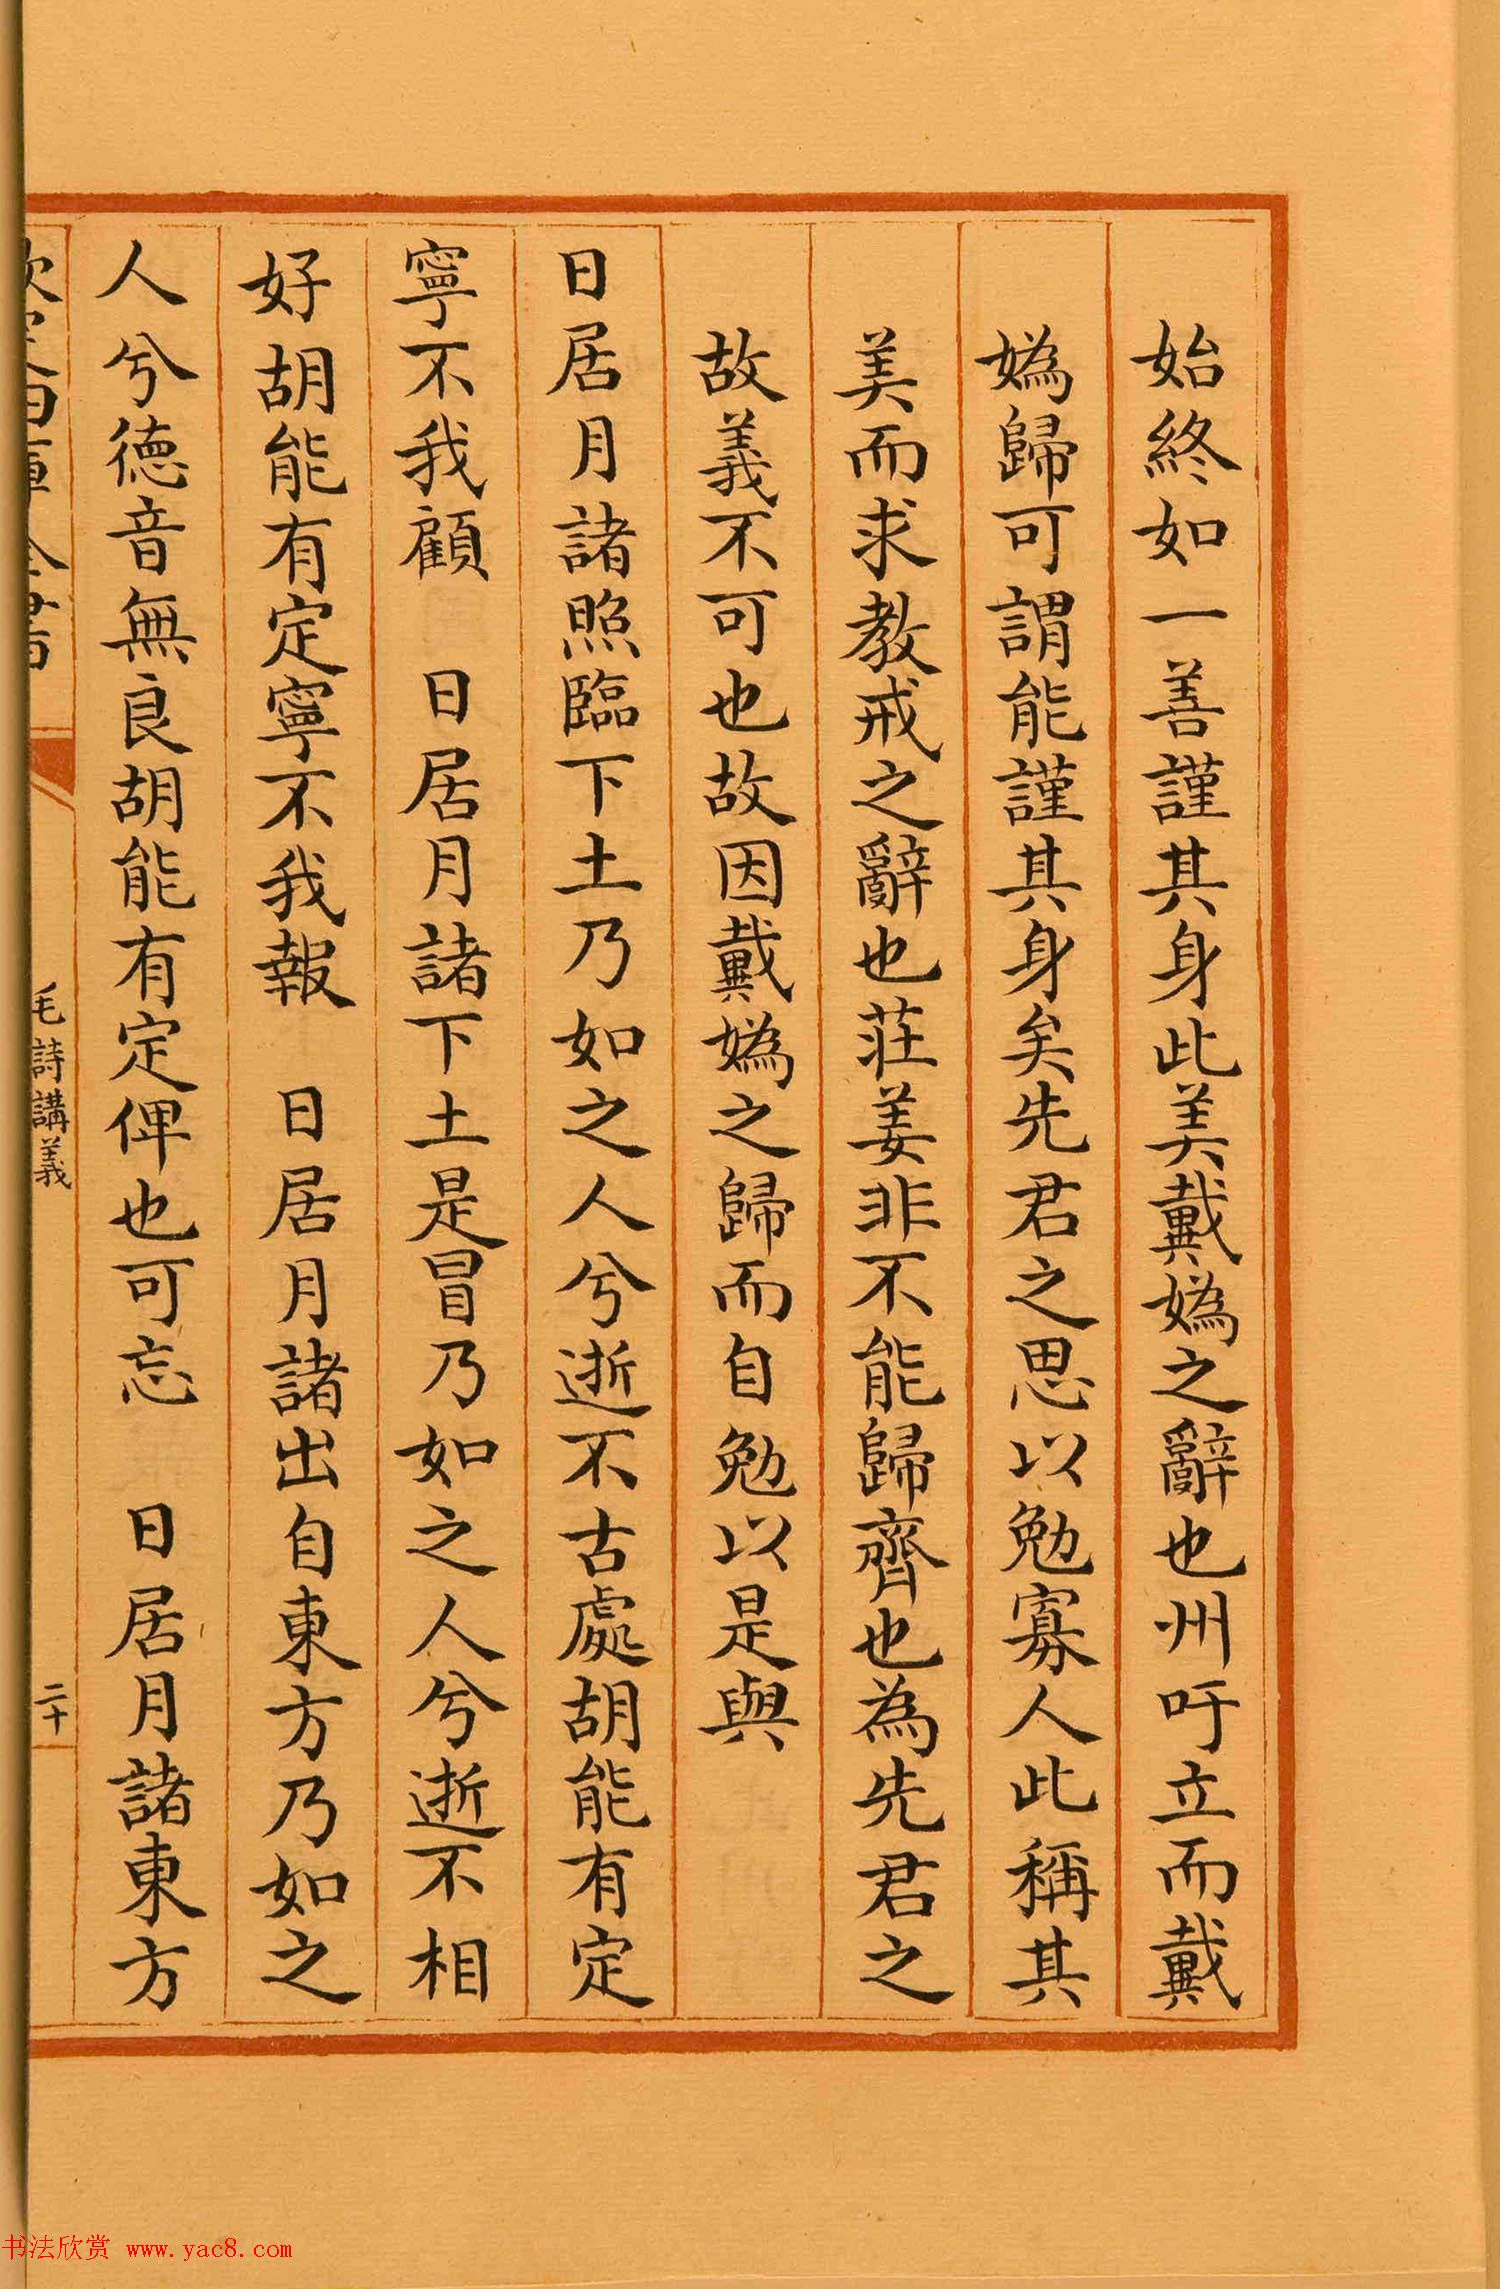 始終如一善謹其身此美戴媯之辭也州吁立而戴
媯歸可謂能謹其身矣先君之思以勉寡人此稱其
美而求教戒之辭也莊姜非不能歸齊也為先君之
故義不可也故因戴媯之歸而自勉以是與
日居月諸照臨下土乃如之人兮逝不古處胡能有定
寧不我顧　日居月諸下土是冒乃如之人兮逝不相
好胡能有定寧不我報　日居月諸出自東方乃如之
人兮德音無良胡能有定俾也可忘　日居月諸東方
欽定四庫全書
毛詩講義
二十
书法欣赏 www.yac8.com